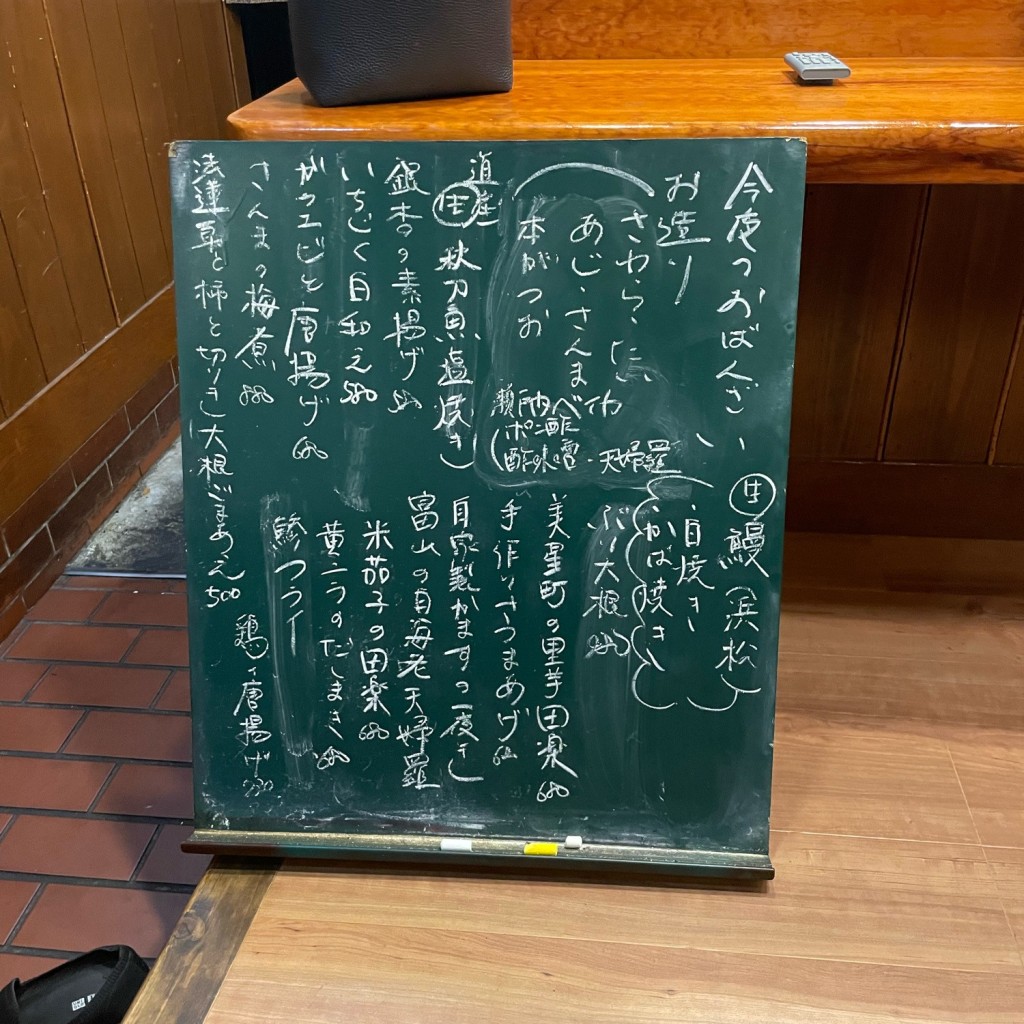 今夜のおばんざい
お造り
さわら、たい
あじ、さんま
本がつお
道産
生 秋刀魚塩焼き
銀杏の素揚げ
いちじく白和え 580
ガサエビと唐揚げ 680
さんまの梅煮 880
法蓮草と柿と切りぼし大根ごまあえ 500
生 鰻(浜松)
白焼き
かば焼き
ぶり大根 880
ポン酢
酢味噌・天婦羅
美星町の里芋田楽 680
手作りさつまあげ
自家製かますの一夜干し
富山の白海老天婦羅
米茄子の田楽 680
黄ニラのだしまき 680
鯵フライ
鶏の唐揚げ 780